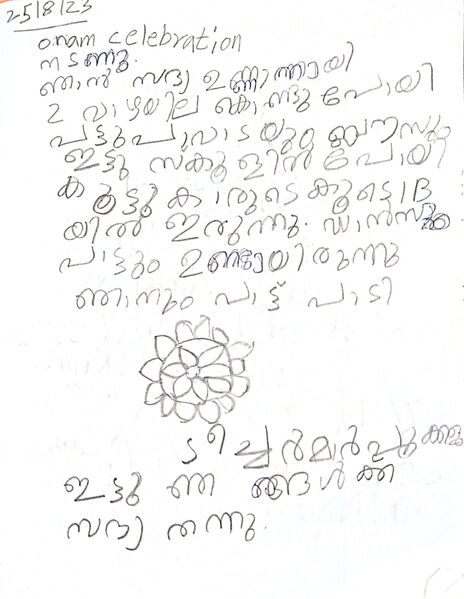 25/8/23
onam celebration
നടന്നു.
ഞാൻ സദ്യ ഉണ്ണാനായി
2 വാഴയില കൊണ്ടുപോയി
പട്ടുപാവാടയും ബ്ലൗസും
ഇട്ടു സ്കൂളിൽ പോയി
കൂട്ടുകാരുടെ കൂടെ 1B
യിൽ ഇരുന്നു. ഡാൻസും
പാട്ടും ഉണ്ടായിരുന്നു
ഞാനും പാട്ട് പാടി
ടീച്ചർമാർ പൂക്കളം
ഇട്ടു ഞങ്ങൾക്ക്
സദ്യ തന്നു.